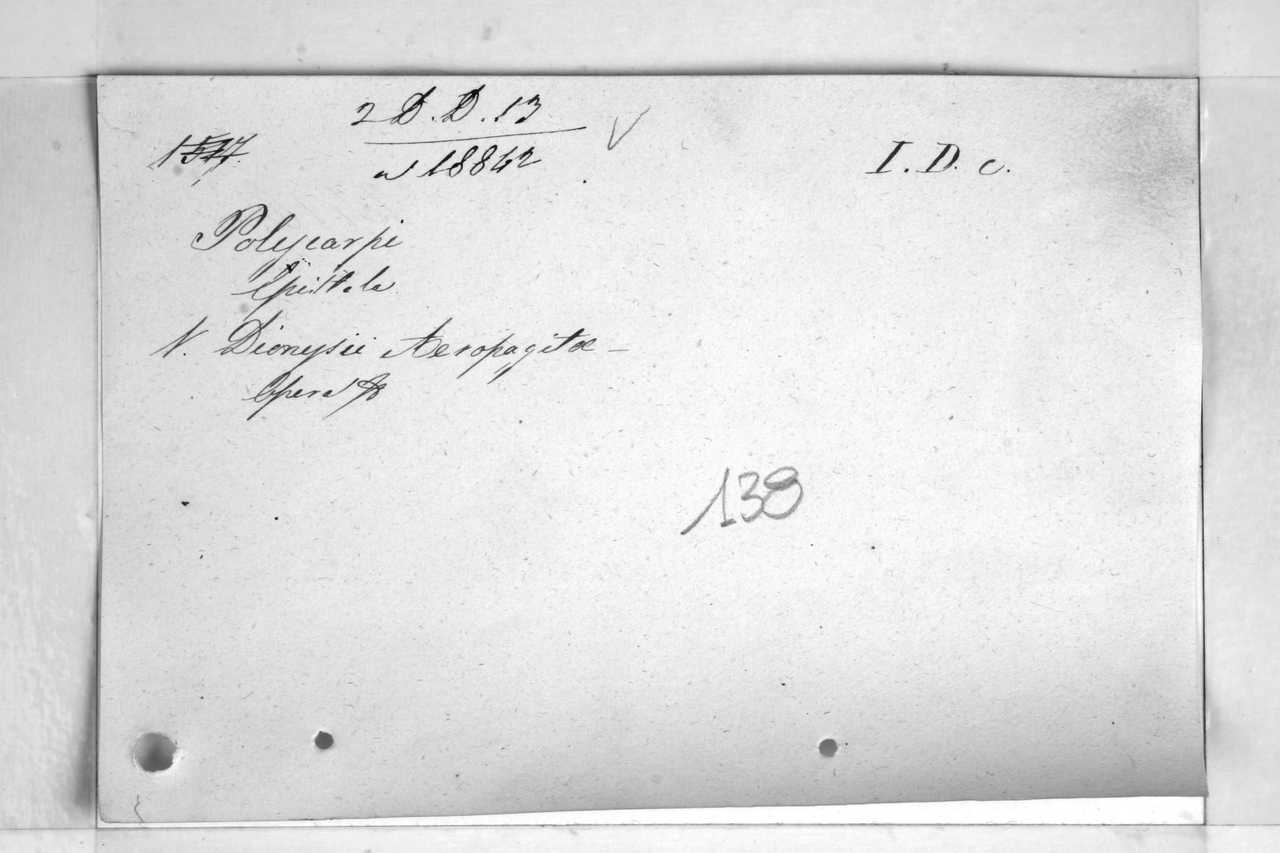 2 D. D. 13
a 18842
I. D. c.
Polycarpi
Epistola
V. Dionysii Aeropagitae —
Opera
138